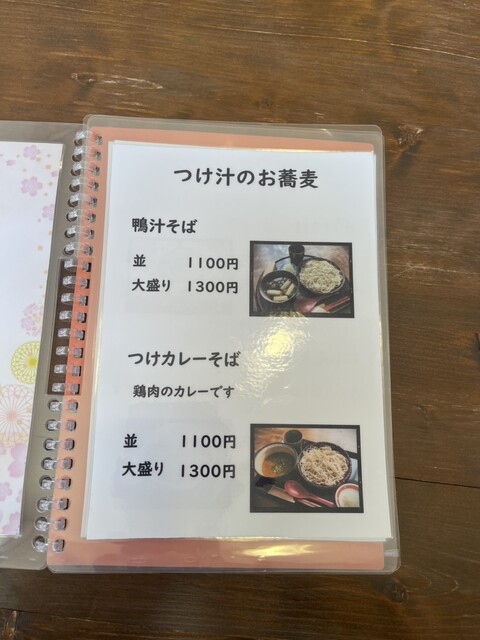 つけ汁のお蕎麦
鴨汁そば
並 1100円
大盛り 1300円
つけカレーそば
鶏肉のカレーです
並 1100円
大盛り 1300円